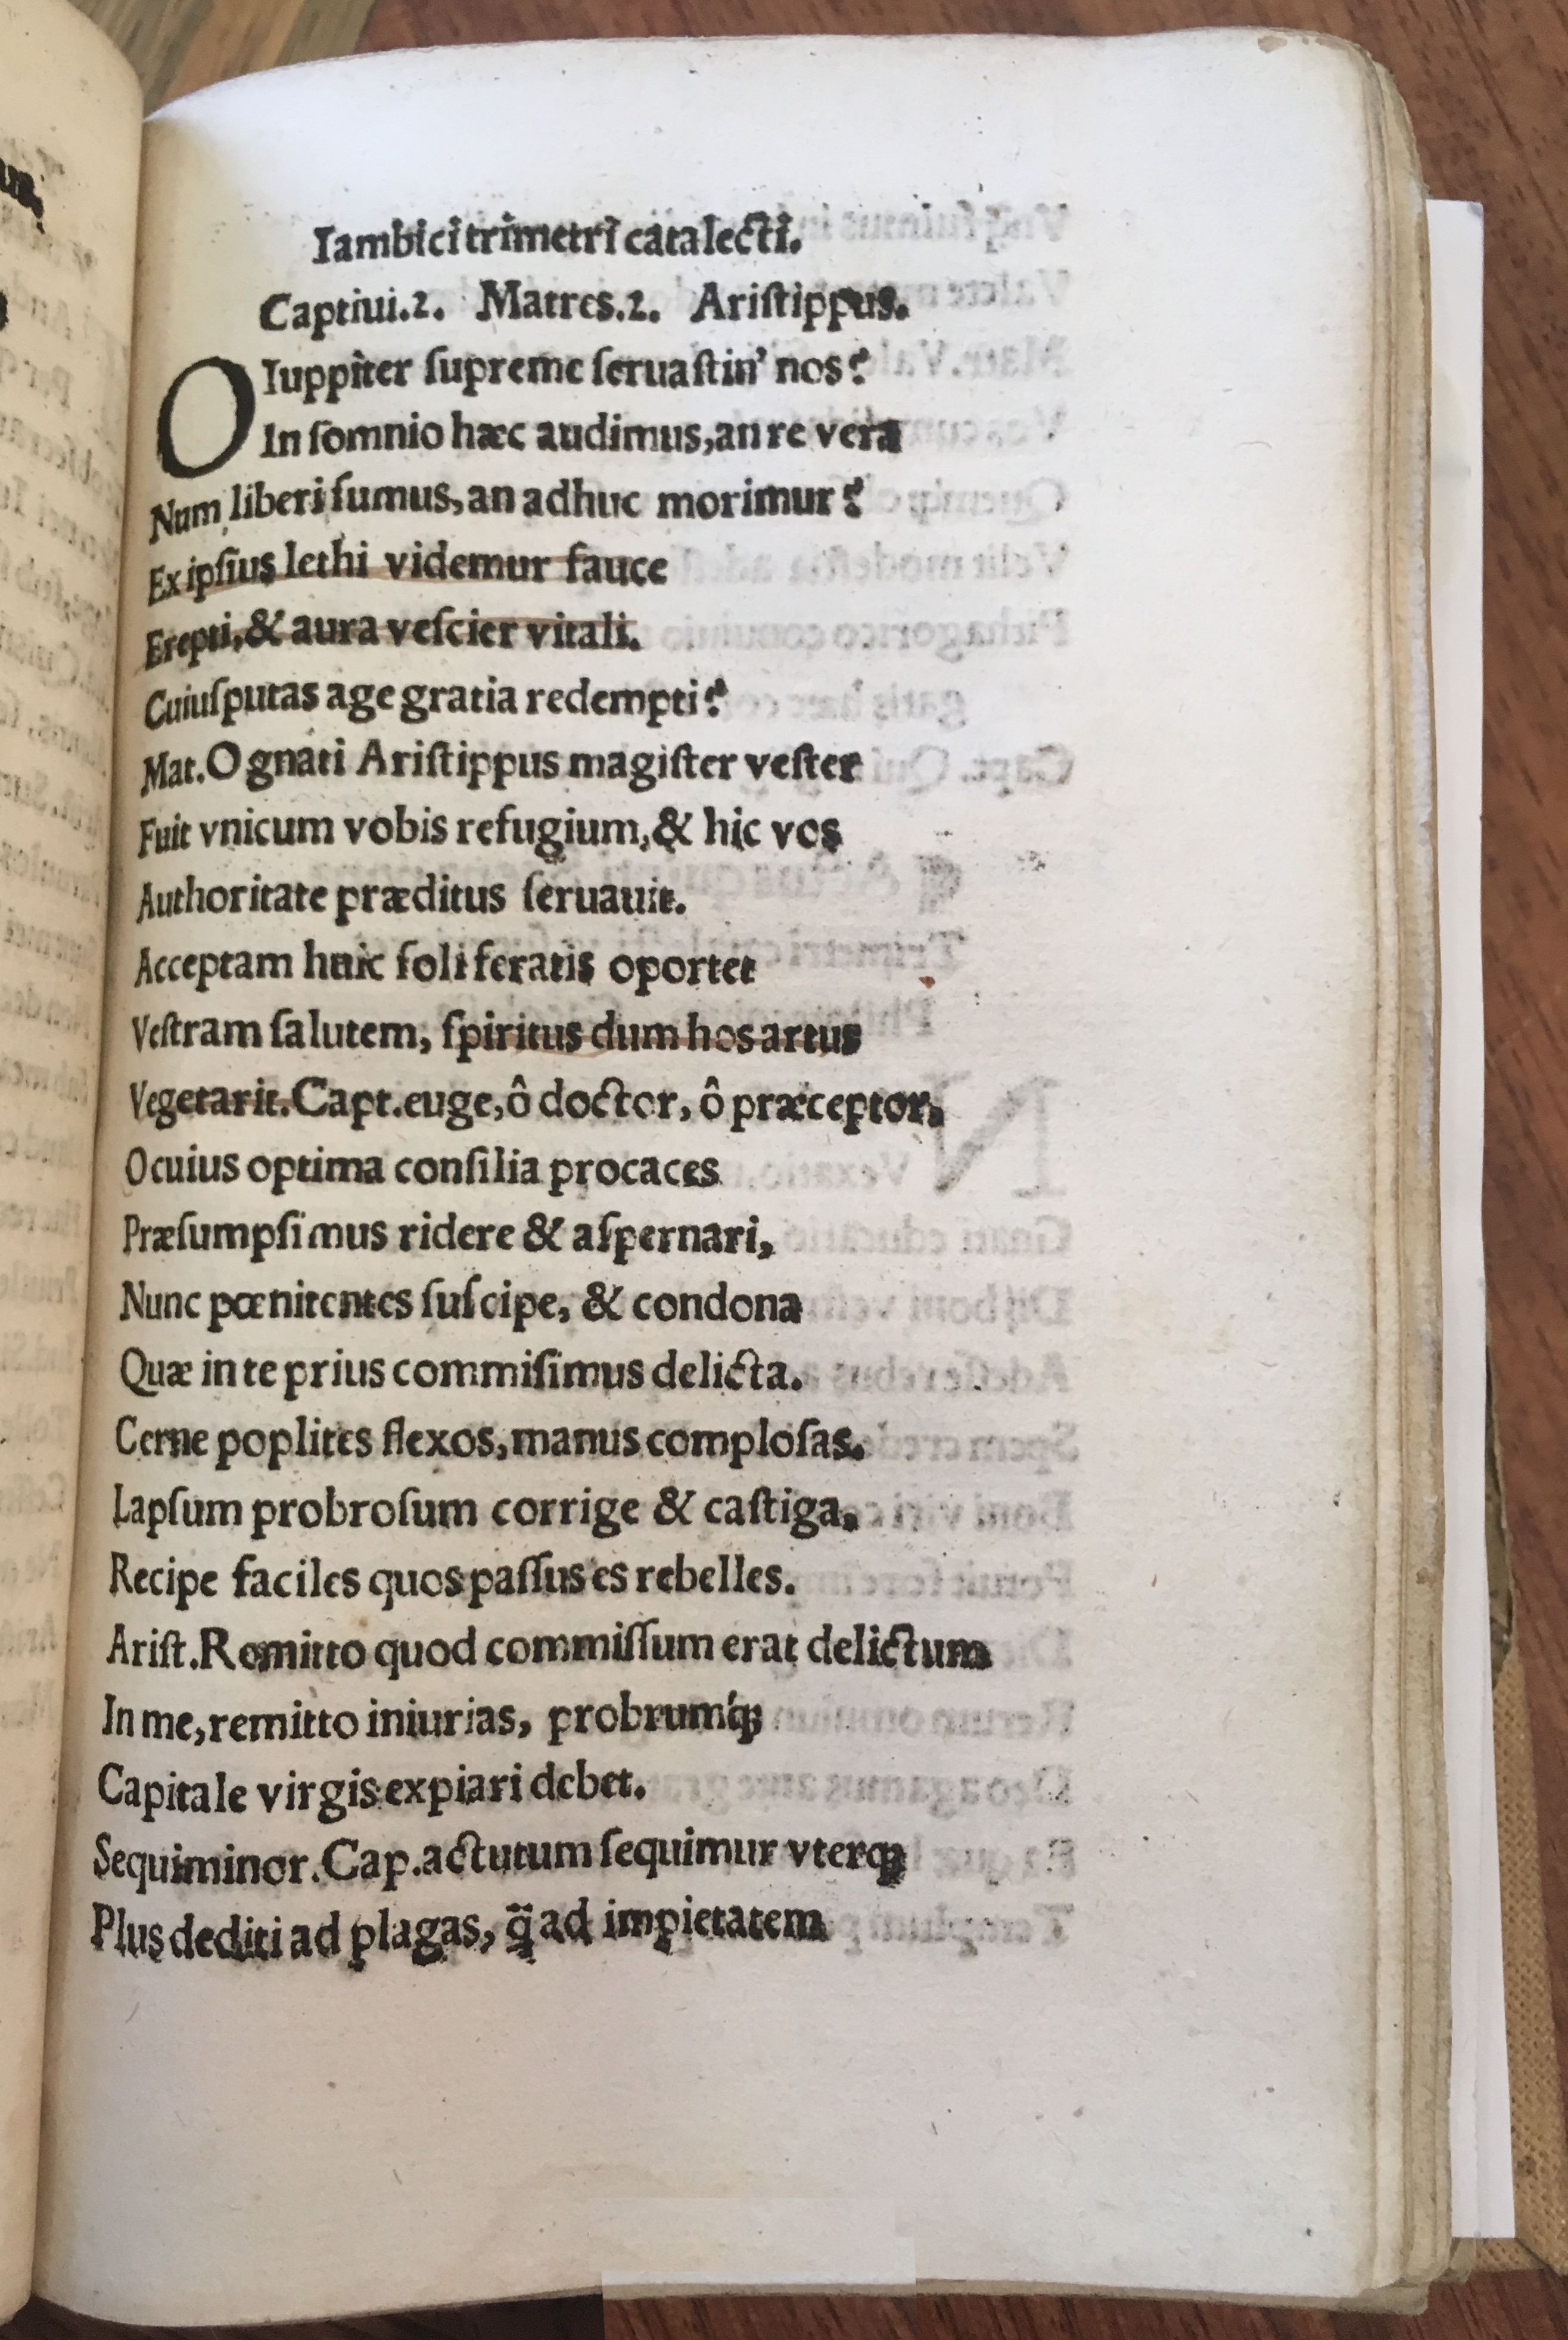 Iambici trimetri catalecti.
Captiui.2. Matres.2. Ariſtippus.
O Iuppiter ſupreme ſeruaſtin’ nos?
In ſomnio hæc audimus, an re vera
Num liberi ſumus, an adhuc morimur?
Ex ipſius lethi videmur fauce
Erepti, & aura veſcier vitali.
Cuiuſputas age gratia redempti?
Mat. O gnati Ariſtippus magiſter veſter
Fuit vnicum vobis refugium, & hic vos
Authoritate præditus ſeruauit.
Acceptam huic ſoli feratis oportet
Veſtram ſalutem, ſpiritus dum hos artus
Vegetarit. Capt. euge, ô doctor, ô præceptor.
O cuius optima conſilia procaces
Præſumpſimus ridere & aſpernari,
Nunc pœnitentes ſuſcipe, & condona
Quæ in te prius commiſimus delicta.
Cerne poplites flexos, manus comploſas.
Lapſum probroſum corrige & caſtiga.
Recipe faciles quos paſſus es rebelles.
Ariſt. Remitto quod commiſſum erat delictum
In me, remitto iniurias, probrumq́;
Capitale virgis expiari debet.
Sequiminor. Cap. actutum ſequimur vterq;
Plus dediti ad plagas, q̈̃ ad impietatem